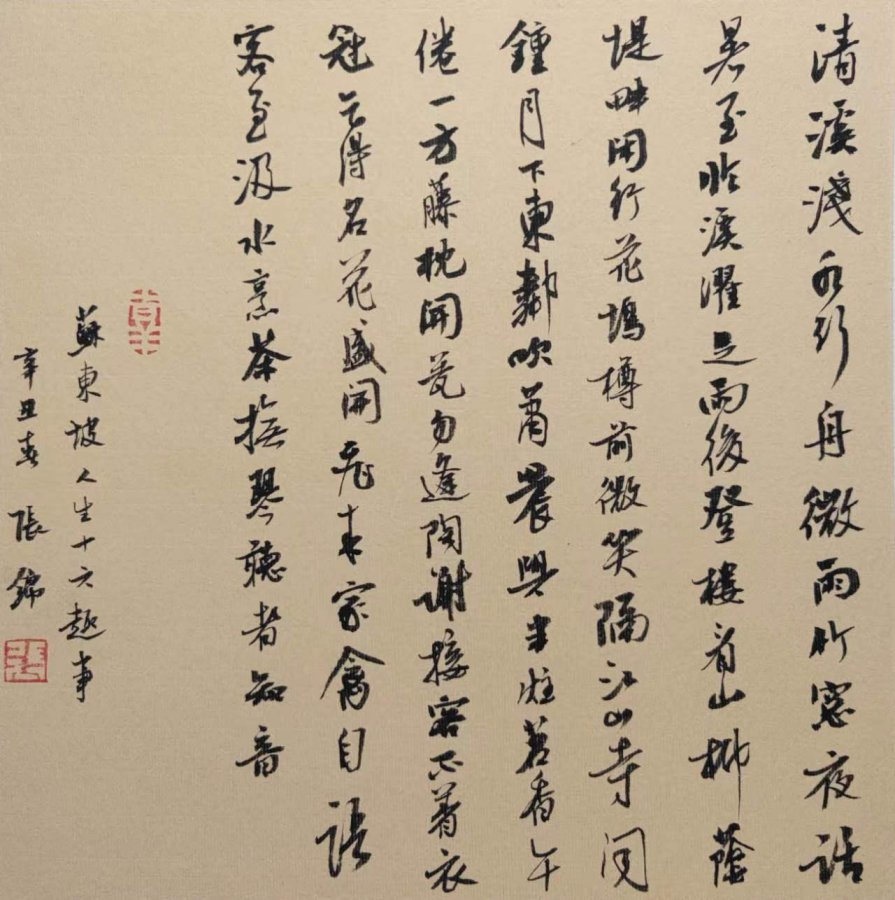 清溪淺水行舟微雨竹窓夜話
暑至臨溪濯足雨後登樓看山柳蔭
堤畔閑行花塢樽前微笑隔江山寺聞
鍾月下東鄰吹簫晨興半炷茗香午
倦一方藤枕開瓮勿逢陶謝接客不着衣
冠乞得名花盛開飛來家禽自語
客至汲水烹茶撫琴聽者知音
蘇東坡人生十六趣事
辛丑春 張錦